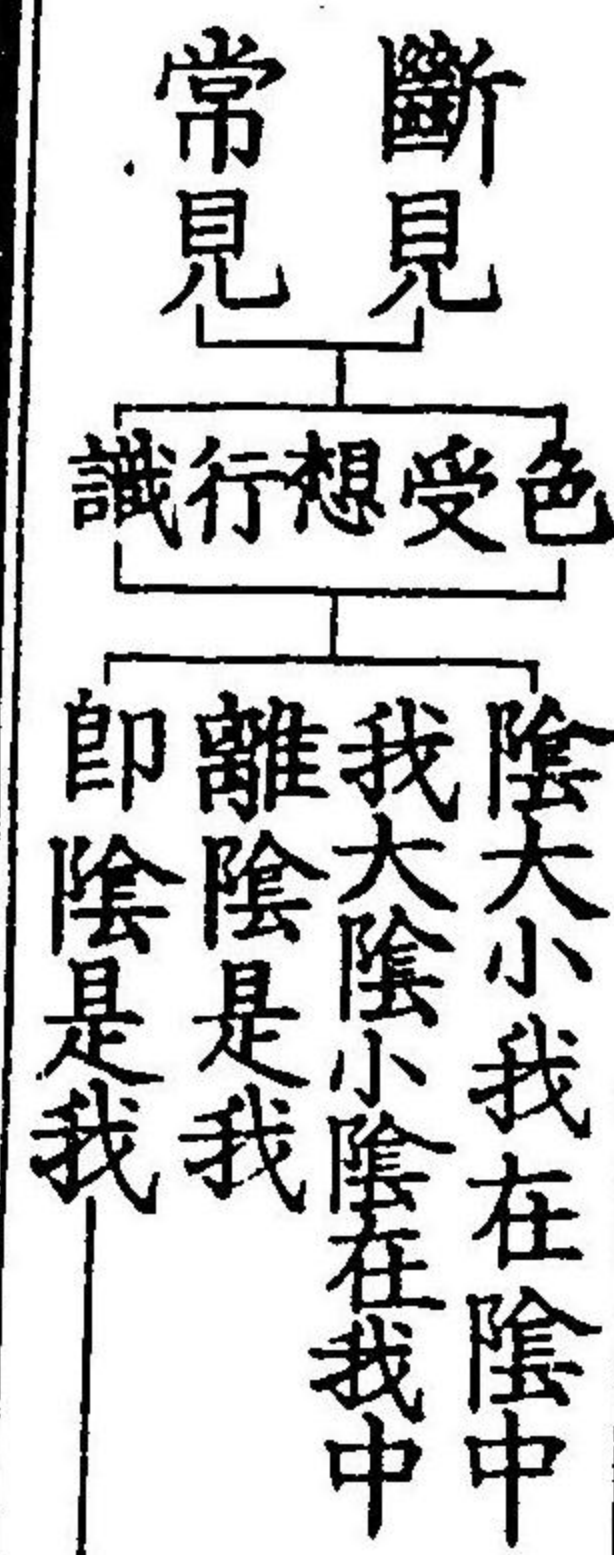 斷見
常見
色受想行識
陰大小我在陰中
我大陰小陰在我中
離陰是我
即陰是我